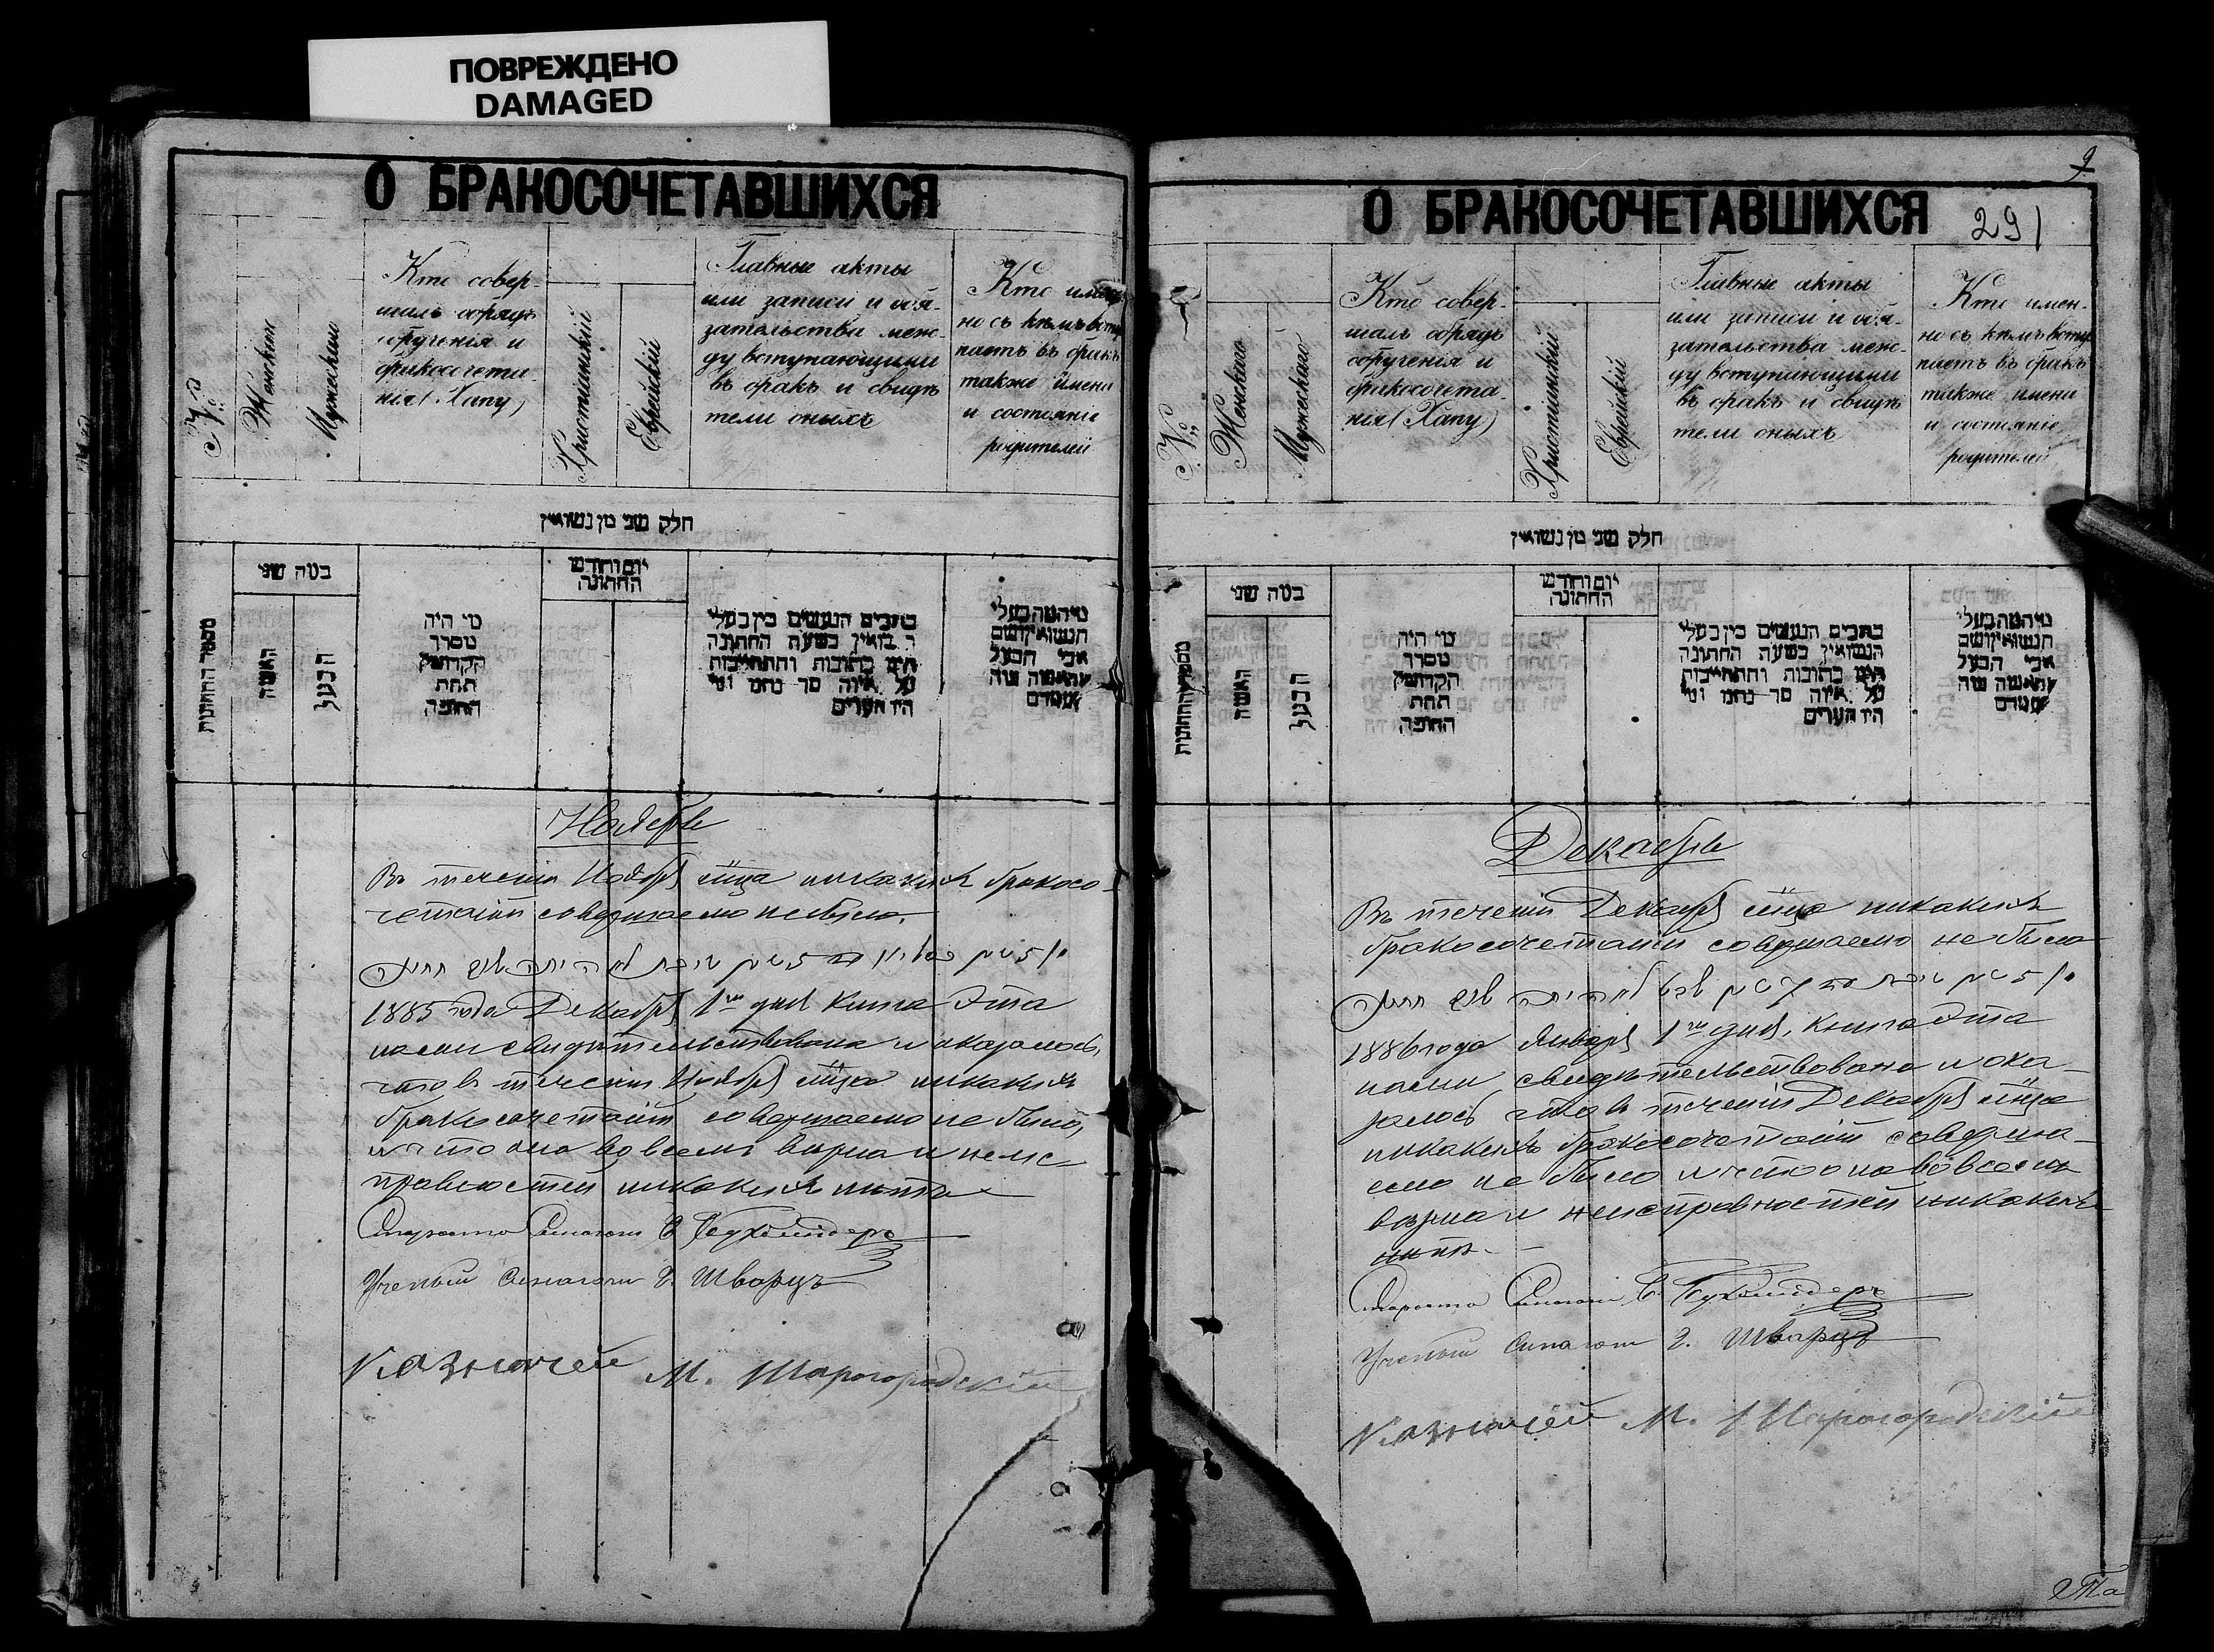 ПОВРЕЖДЕНО
DAMAGED
О БРАКОСОЧЕТАВШИХСЯ
№
Женскаго
Мужескаго
Кто совер-
шалъ обрядъ
обрученія и
бракосочета-
нія (Хапу)
Христіянскій
Еврейскій
Главные акты
или записи и обя-
зательства меж-
ду вступающими
въ бракъ и свидѣ
тели оныхъ
Кто имен
но съ кѣмъ всту
паетъ въ бракъ
также имена
и состояніе
родителей
חלק שני מן נשואין
מספר החתונות
כמה שני
האשה
הבעל
מי היה
מסדר
הקדושין
תחת
החופה
יום וחודש
החתונה
כתבים הנעשים בין בעלי
הנשואין בשעת החתונה
היינו כתובות והתחייבות
על איזה סך נתנו ומי
היו העדים
מי המה בעלי
הנשואין ושם
אבי הבעל
והאשה ומה
אומדם
Ноябрь
Въ теченіи Ноября мца никакихъ бракосо-
четаній совершаемо не было.
1885 года Декабря 1го дня книга эта
нами свидѣтельствована и оказалось,
что въ теченіи Ноября мца никакихъ
бракосочетаній совершаемо не было,
и что она во всемъ вѣрна и неис-
правностей никакихъ нѣтъ
Староста Синагоги
Ученый Синагоги Г. Шварцъ
Казначей М. Шарогородскій
9
О БРАКОСОЧЕТАВШИХСЯ
291
№
Женскаго
Мужескаго
Кто совер-
шалъ обрядъ
обрученія и
бракосочета-
нія (Хапу)
Христіянскій
Еврейскій
Главные акты
или записи и обя-
зательства меж-
ду вступающими
въ бракъ и свидѣ
тели оныхъ
Кто имен-
но съ кѣмъ всту
паетъ въ бракъ
также имена
и состояніе
родителей
חלק שני מן נשואין
מספר החתונות
כמה שני
האשה
הבעל
מי היה
מסדר
הקדושין
תחת
החופה
יום וחודש
החתונה
כתבים הנעשים בין בעלי
הנשואין בשעת החתונה
היינו כתובות והתחייבות
על איזה סך נתנו ומי
היו העדים
מי המה בעלי
הנשואין ושם
אבי הבעל
והאשה ומה
אומדם
Декабрь
Въ теченіи Декабря мца никакихъ
бракосочетаній совершаемо не было
1886 года Января 1го дня, книга эта
нами свидѣтельствована и ока-
залось что въ теченіи Декабря мца
никакихъ бракосочетаній соверша-
емо не было и что она во всемъ
вѣрна и неисправностей никакихъ
нѣтъ.
Староста Синагоги
Ученый Синагоги Г. Шварцъ
Казначей М. Шарогородскій